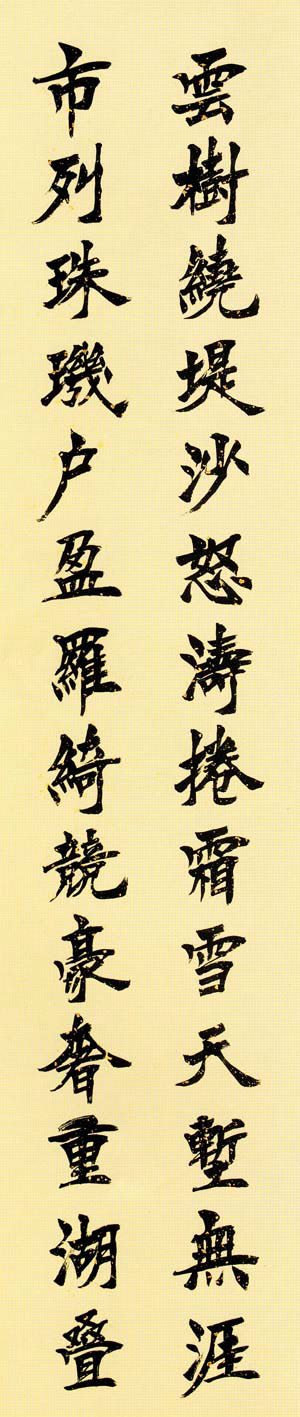 雲樹繞堤沙怒濤捲霜雪天塹無涯
市列珠璣户盈羅綺競豪奢重湖疊